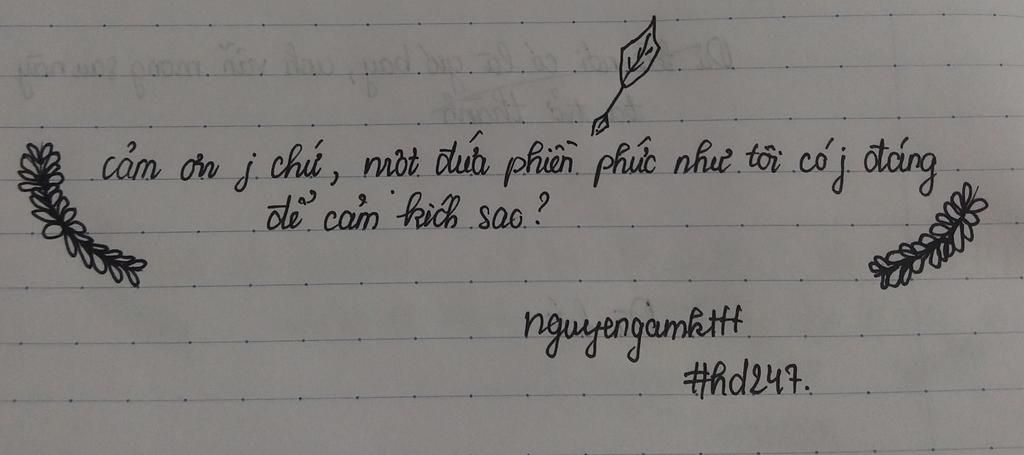 cảm ơn j chứ, một đứa phiền phức như tôi có j đáng
để cảm kích sao?
nguyengamkttt
#hd247.